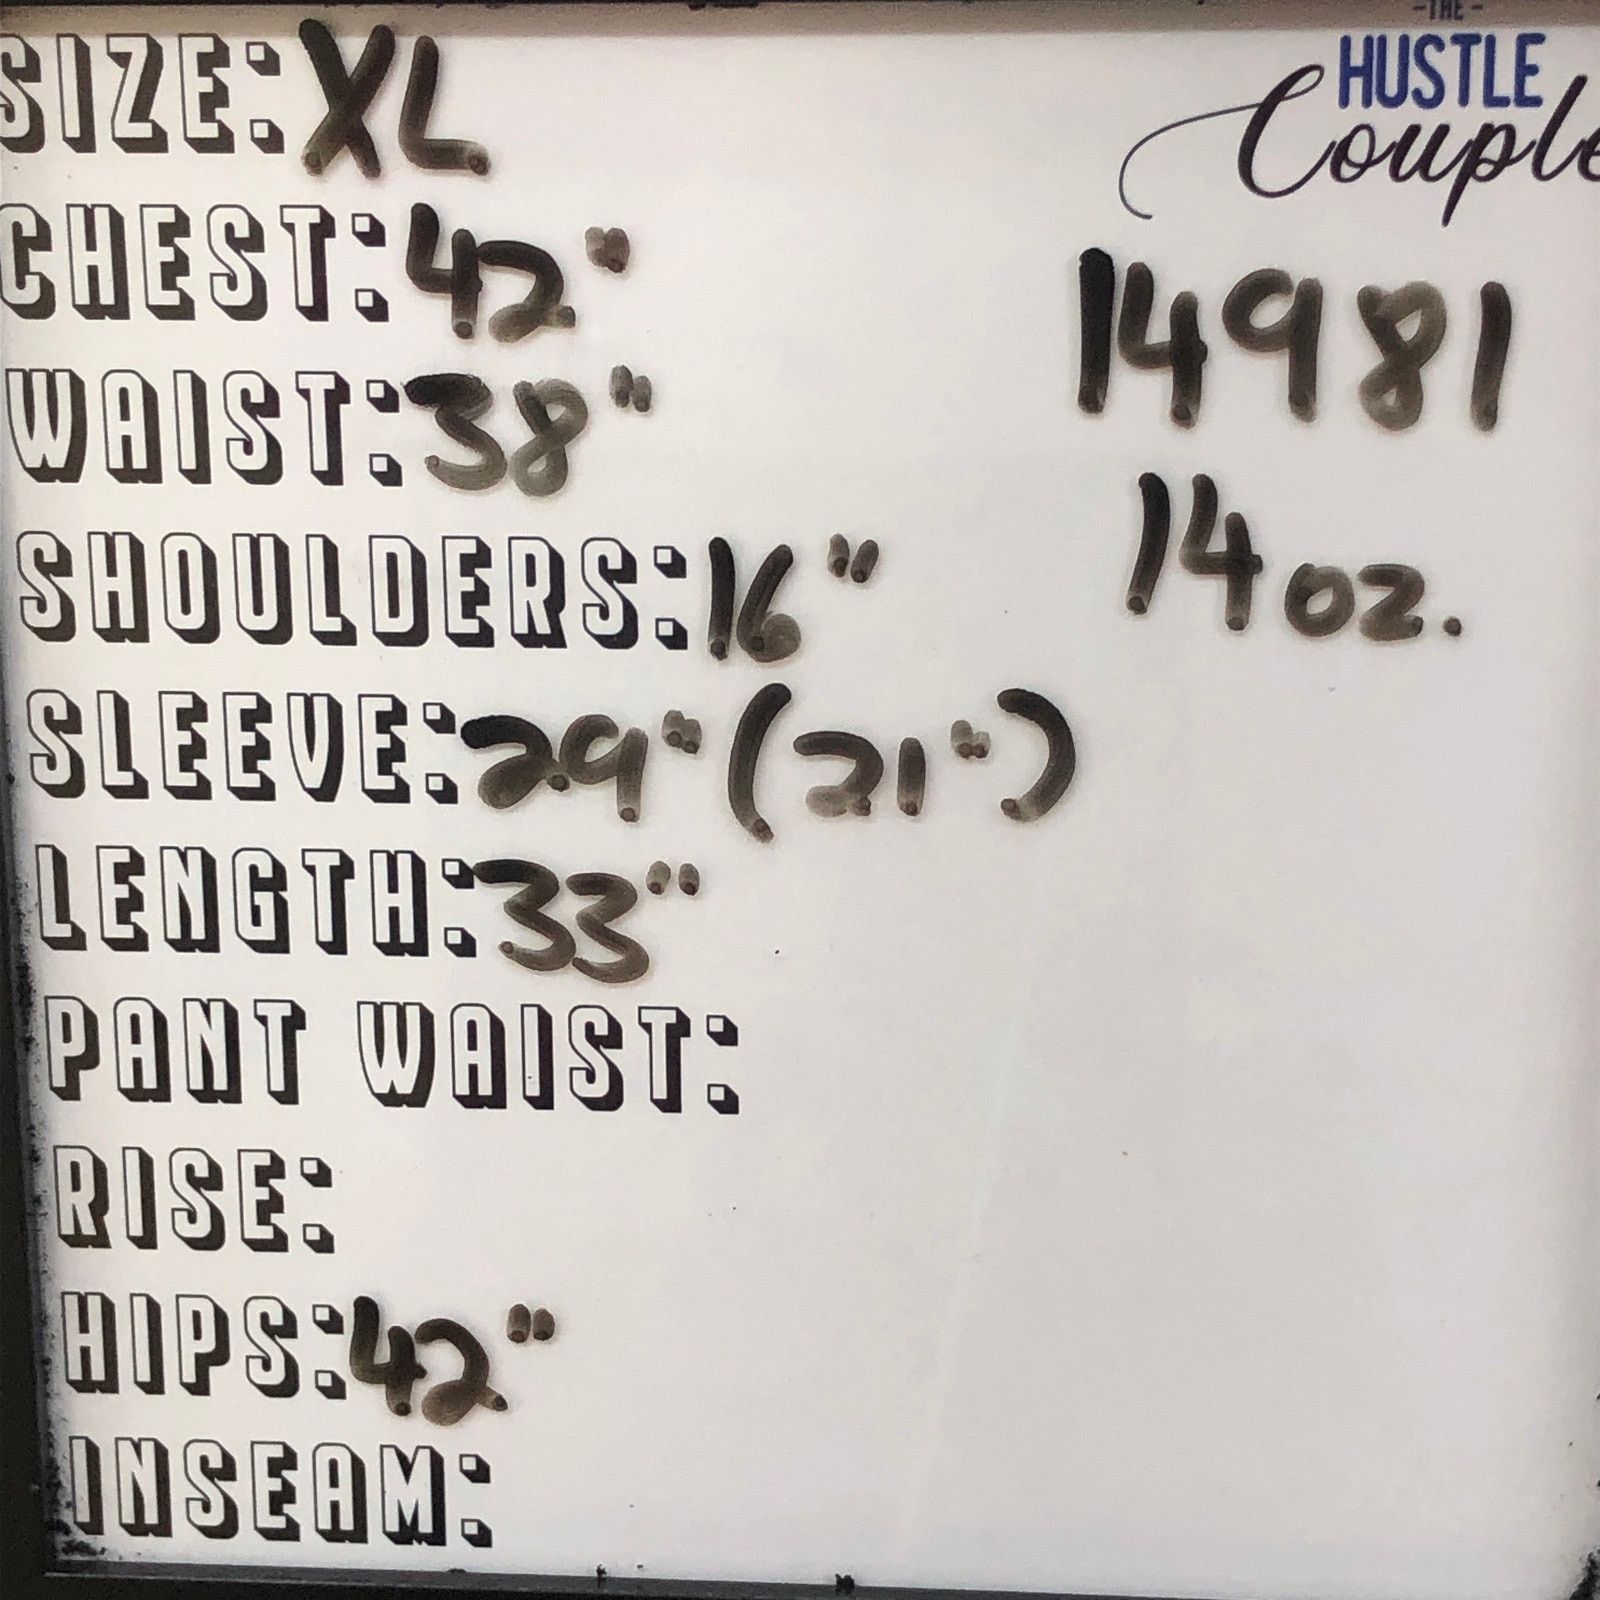 -THE-
HUSTLE
Couple
SIZE: XL
CHEST: 42"
WAIST: 38"
SHOULDERS: 16"
SLEEVE: 29" (21")
LENGTH: 33"
PANT WAIST:
RISE:
HIPS: 42"
INSEAM:
14981
14 oz.